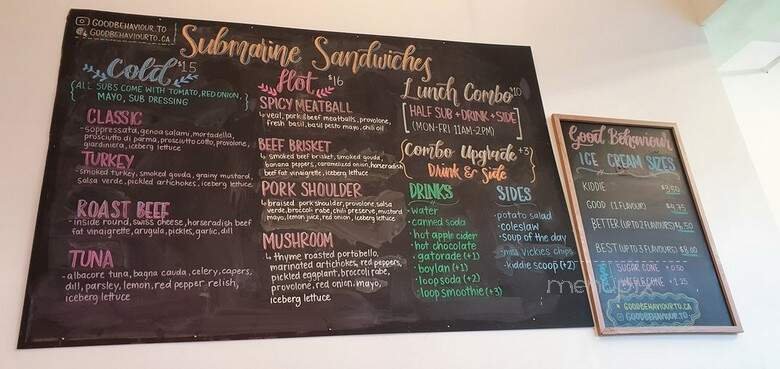 GOODBEHAVIOUR.TO
GOODBEHAVIOUR.TO.CA
Submarine Sandwiches
Cold $15
ALL SUBS COME WITH TOMATO, RED ONION,
MAYO, SUB DRESSING
CLASSIC
- soppressata, genoa salami, mortadella,
prosciutto di parma, prosciutto cotto, provolone,
giardiniera, iceberg lettuce
TURKEY
- smoked turkey, smoked gouda, grainy mustard,
salsa verde, pickled artichokes, iceberg lettuce
ROAST BEEF
- inside round, swiss cheese, horseradish beef
fat vinaigrette, arugula, pickles, garlic, dill
TUNA
- albacore tuna, bagna cauda, celery, capers,
dill, parsley, lemon, red pepper relish,
iceberg lettuce
Hot $16
SPICY MEATBALL
veal, pork & beef meatballs, provolone,
fresh basil, basil pesto mayo, chili oil
BEEF BRISKET
smoked beef brisket, smoked gouda,
banana peppers, caramelized onion, horseradish
beef fat vinaigrette, iceberg lettuce
PORK SHOULDER
braised pork shoulder, provolone, salsa
verde, broccoli rabe, chili preserve, mustard
mayo, lemon juice, red onion, iceberg lettuce
MUSHROOM
thyme roasted portobello,
marinated artichokes, red peppers,
pickled eggplant, broccoli rabe,
provolone, red onion, mayo,
iceberg lettuce
Lunch Combo $10
HALF SUB + DRINK + SIDE
(MON-FRI 11AM-2PM)
Combo Upgrade +3
Drink & Side
DRINKS
- water
- canned soda
- hot apple cider
- hot chocolate
- gatorade (+1)
- boylan (+1)
- loop soda (+2)
- loop smoothie (+3)
SIDES
- potato salad
- coleslaw
- soup of the day
- miss vickies chips
- kiddie scoop (+2)
Good Behaviour
ICE CREAM SIZES
KIDDIE
GOOD (1 FLAVOUR)
BETTER (UP TO 2 FLAVOURS) $6.50
BEST (UP TO 3 FLAVOURS) $8.00
SUGAR CONE +0.50
WAFFLE CONE +1.25
GOODBEHAVIOUR.TO.CA
GOODBEHAVIOUR.TO